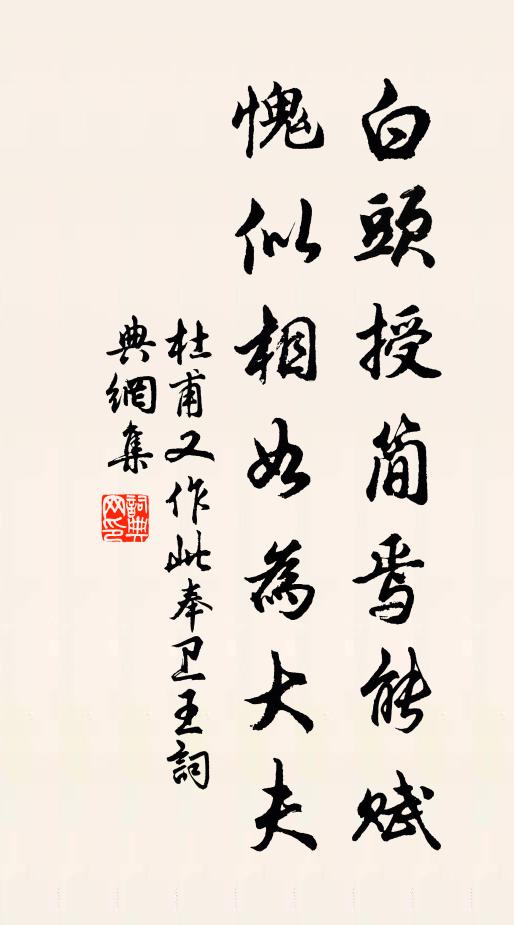 白頭授简焉能赋
愧似相如為大夫
杜甫又作此奉卫王詞
典網集
詞典网印